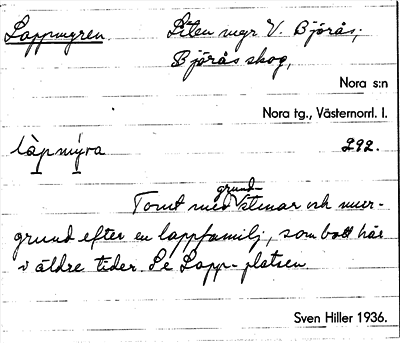 Lappmyren. Liten myr V. Björås,
Björås skog,
Nora s:n
Nora tg., Västernorrl. l.
làpmýra 292.
Tomt med grund-
stenar och mur-
grund efter en lappfamilj, som bott här
i äldre tider. Se Lapp-platsen
Sven Hiller 1936.